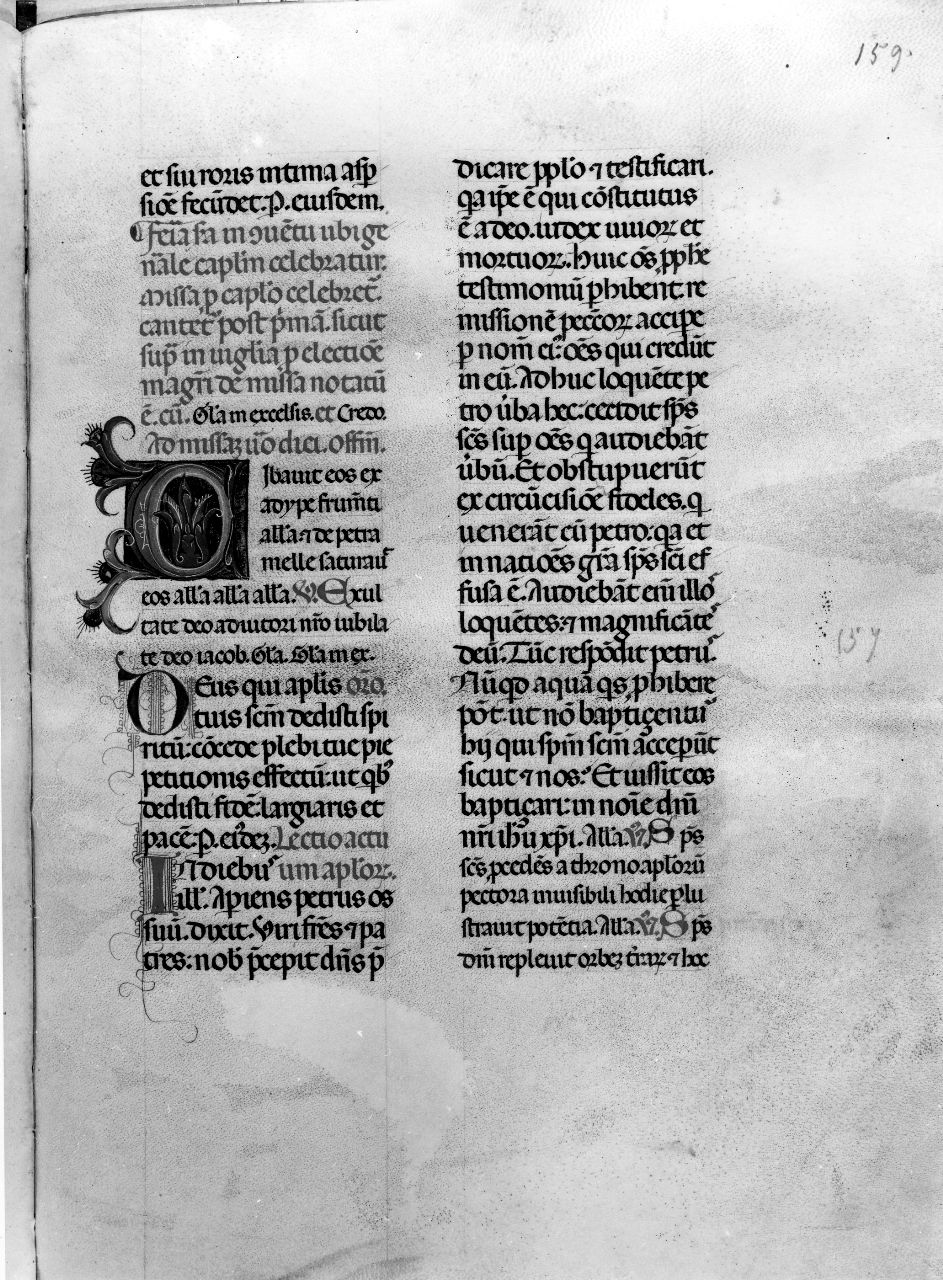 159.
et sui roris intima asp̄
siōe fecūdet. P. eiusdem.
feria s̄a in ꝯuētu ubi ge
nāle capl̄m celebratur.
Missa ꝓ capl̄o celebret᷑.
cantet᷑ post p̄mā. sicut
sup̄ in uiglia ꝓ electiōe
magr̄i de missa notatū
ē. cū. Gl̄a in excelsis. et Credo.
Ad missaꝫ ū̄o diei. offm̄.
Cibauit eos ex
adype frum̄ti
all̄a ⁊ de petra
melle saturauit
eos all̄a all̄a all̄a. V̄. Exul
tate deo adiutori nr̄o iubila
te deo iacob. Gl̄a. Gl̄a in ex.
Deus qui apl̄is oro.
tuis scm̄ dedisti spi
ritū: cōcede plebi tue pie
petitionis effectū: ut qb᷒
dedisti fidē: largiaris et
pacē. P. eūdeꝫ. Lectio actu
In diebꝰ um apl̄oꝝ.
ill̄. Apiens petrus os
suū. dixit. Viri fr̄es ⁊ pa
tres: nob̄ p̄cepit dn̄s p̄
dicare pplo ⁊ testificari.
qa ip̄e ē qui cōstitutus
ē a deo. iudex uiuoꝝ et
mortuoꝝ. Huic oēs ꝓph̄e
testimoniū ꝑhibent. re
missionē pecc̄oꝝ accipe
p nom̄ eiꝰ oēs qui credūt
in eū. Adhuc loquēte pe
tro ūba hec: cecidit sp̄s
sc̄s sup oēs q audiebāt
ūbū. Et obstupuerūt
ex circūcisiōe fideles. q
uenerāt cū petro: qa et
in natiōes gr̄a sp̄s sc̄i ef
fusa ē. Audiebāt em̄ illoꝰ
loquētes: ⁊ magnificātes
deū. Tūc respōdit petrꝰ.
Nūqd aquā qs ꝓhibere
pōt. ut nō baptiçent᷑
hij qui spm̄ scm̄ acceperūt
sicut ⁊ nos? Et iussit eos
baptiçari: in noīe dn̄i
nr̄i ih̄u xp̄i. All̄a. V̄. Sp̄s
sc̄s ꝓcedēs a throno. apl̄orū
pectora inuisibili hodie ꝑlu
strauit potētia. All̄a. V̄. Sp̄s
dn̄i repleuit orbeꝫ tr̄aꝝ ⁊ hoc
157